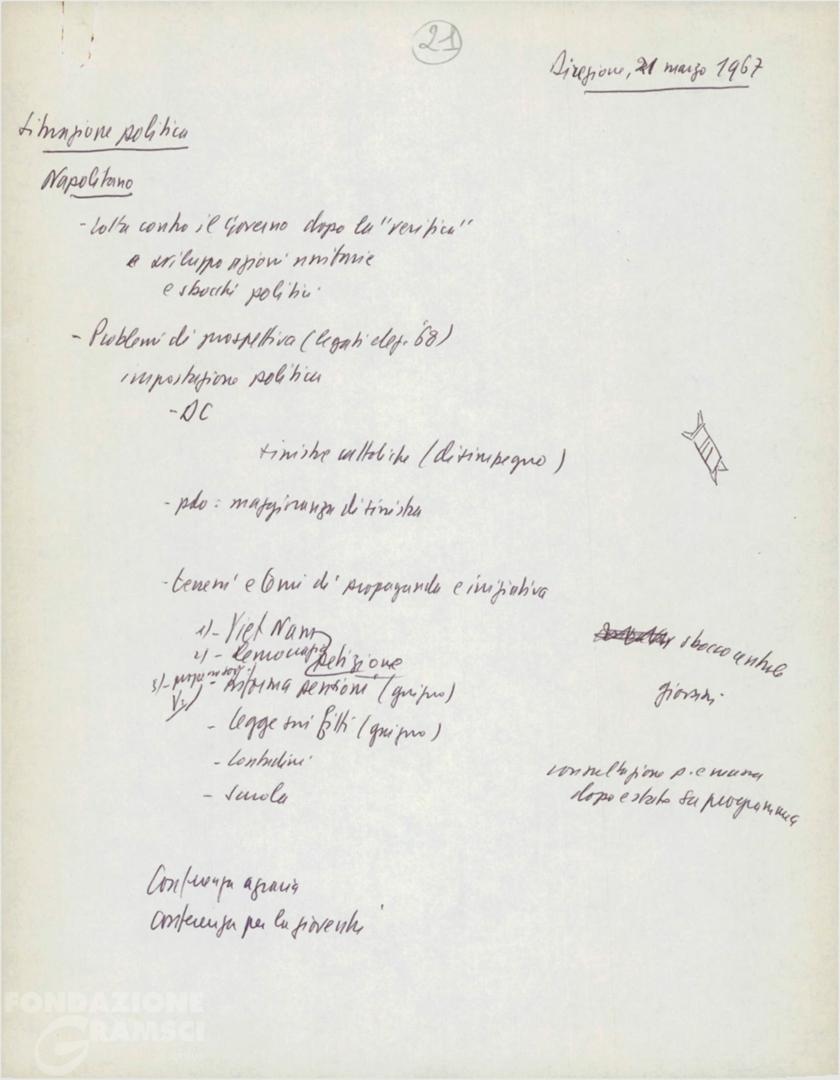 21
Direzione, 21 marzo 1967
Situazione politica
Napolitano
- Lotta contro il Governo dopo la "verifica"
e sviluppo azioni unitarie
e sbocchi politici
- Problemi di prospettiva (legati elez. '68)
impostazione politica
- DC
sinistre cattoliche (disimpegno)
- pdo: maggioranza di sinistra
- terreni e temi di propaganda e iniziativa
1) - Viet Nam
2) - Democrazia petizione
3) - riforma pensioni (giugno)
- legge sui fitti (giugno)
- Contadini
- Scuola
sbocco centrale
giovani
consultazione
dopo estate su programma
Conferenza agraria
Conferenza per la gioventù
FONDAZIONE
GRAMSCI